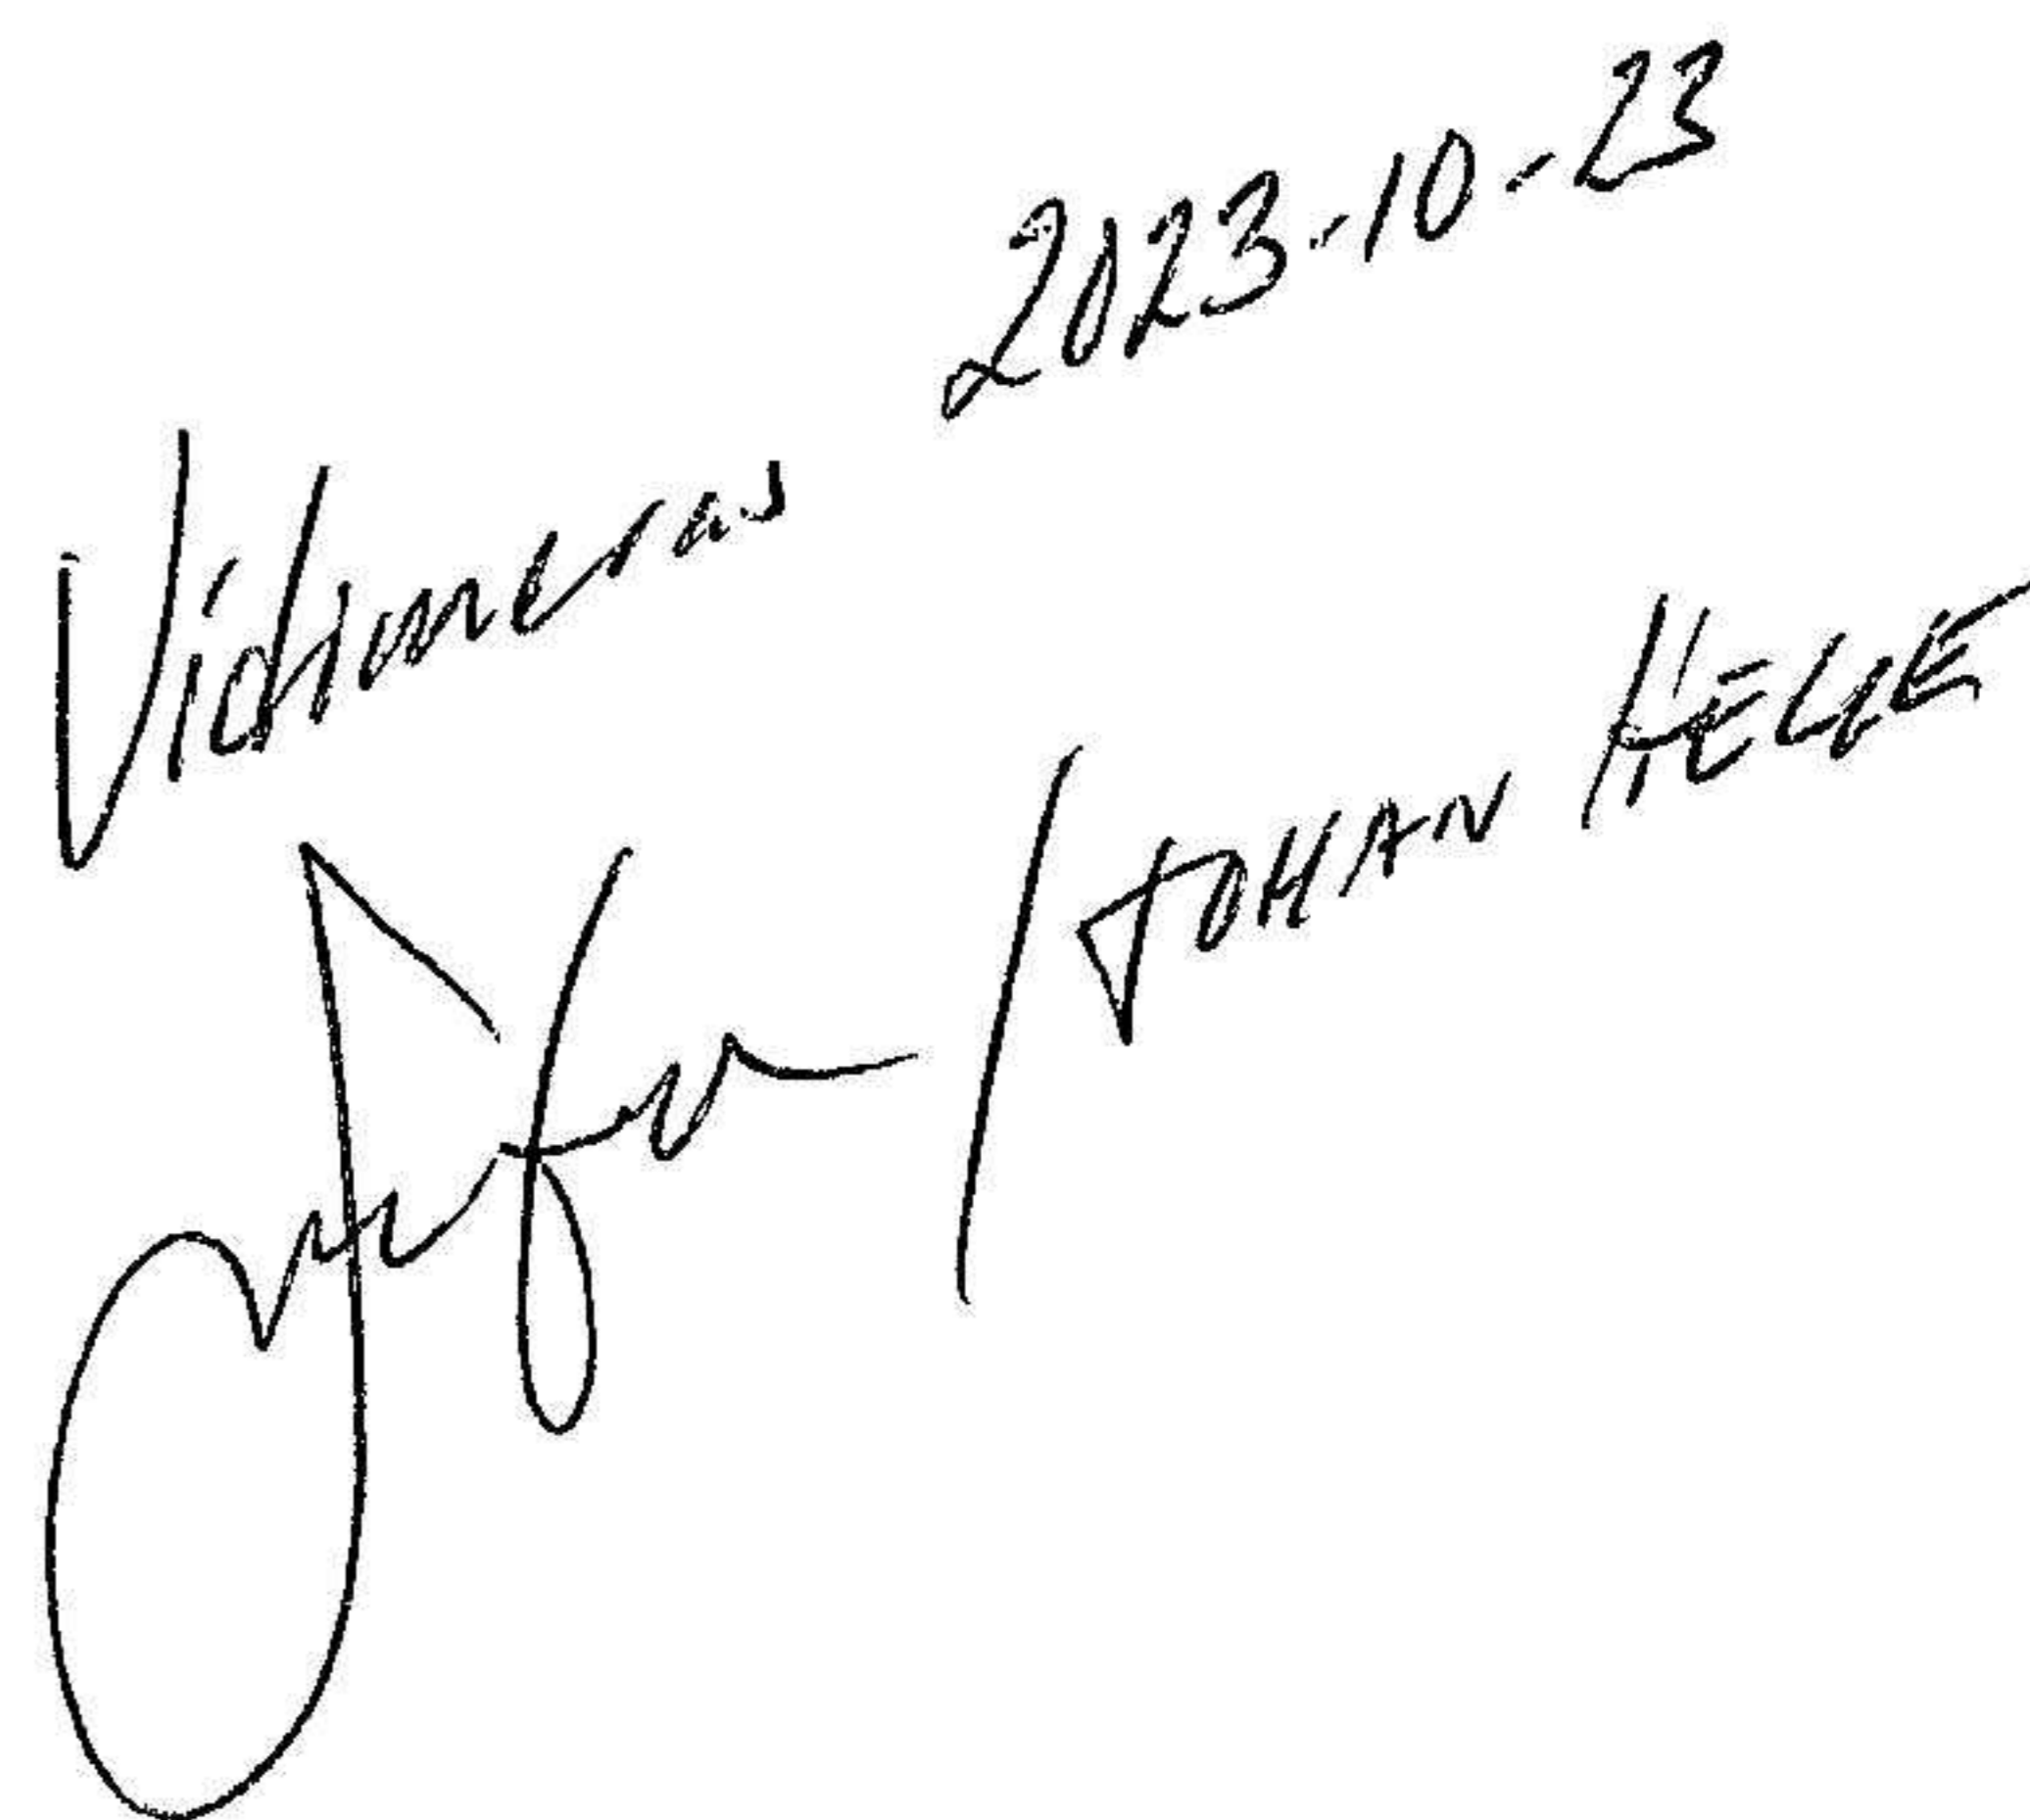 Vidimeras 2023-10-23
/ JOHAN HELGE